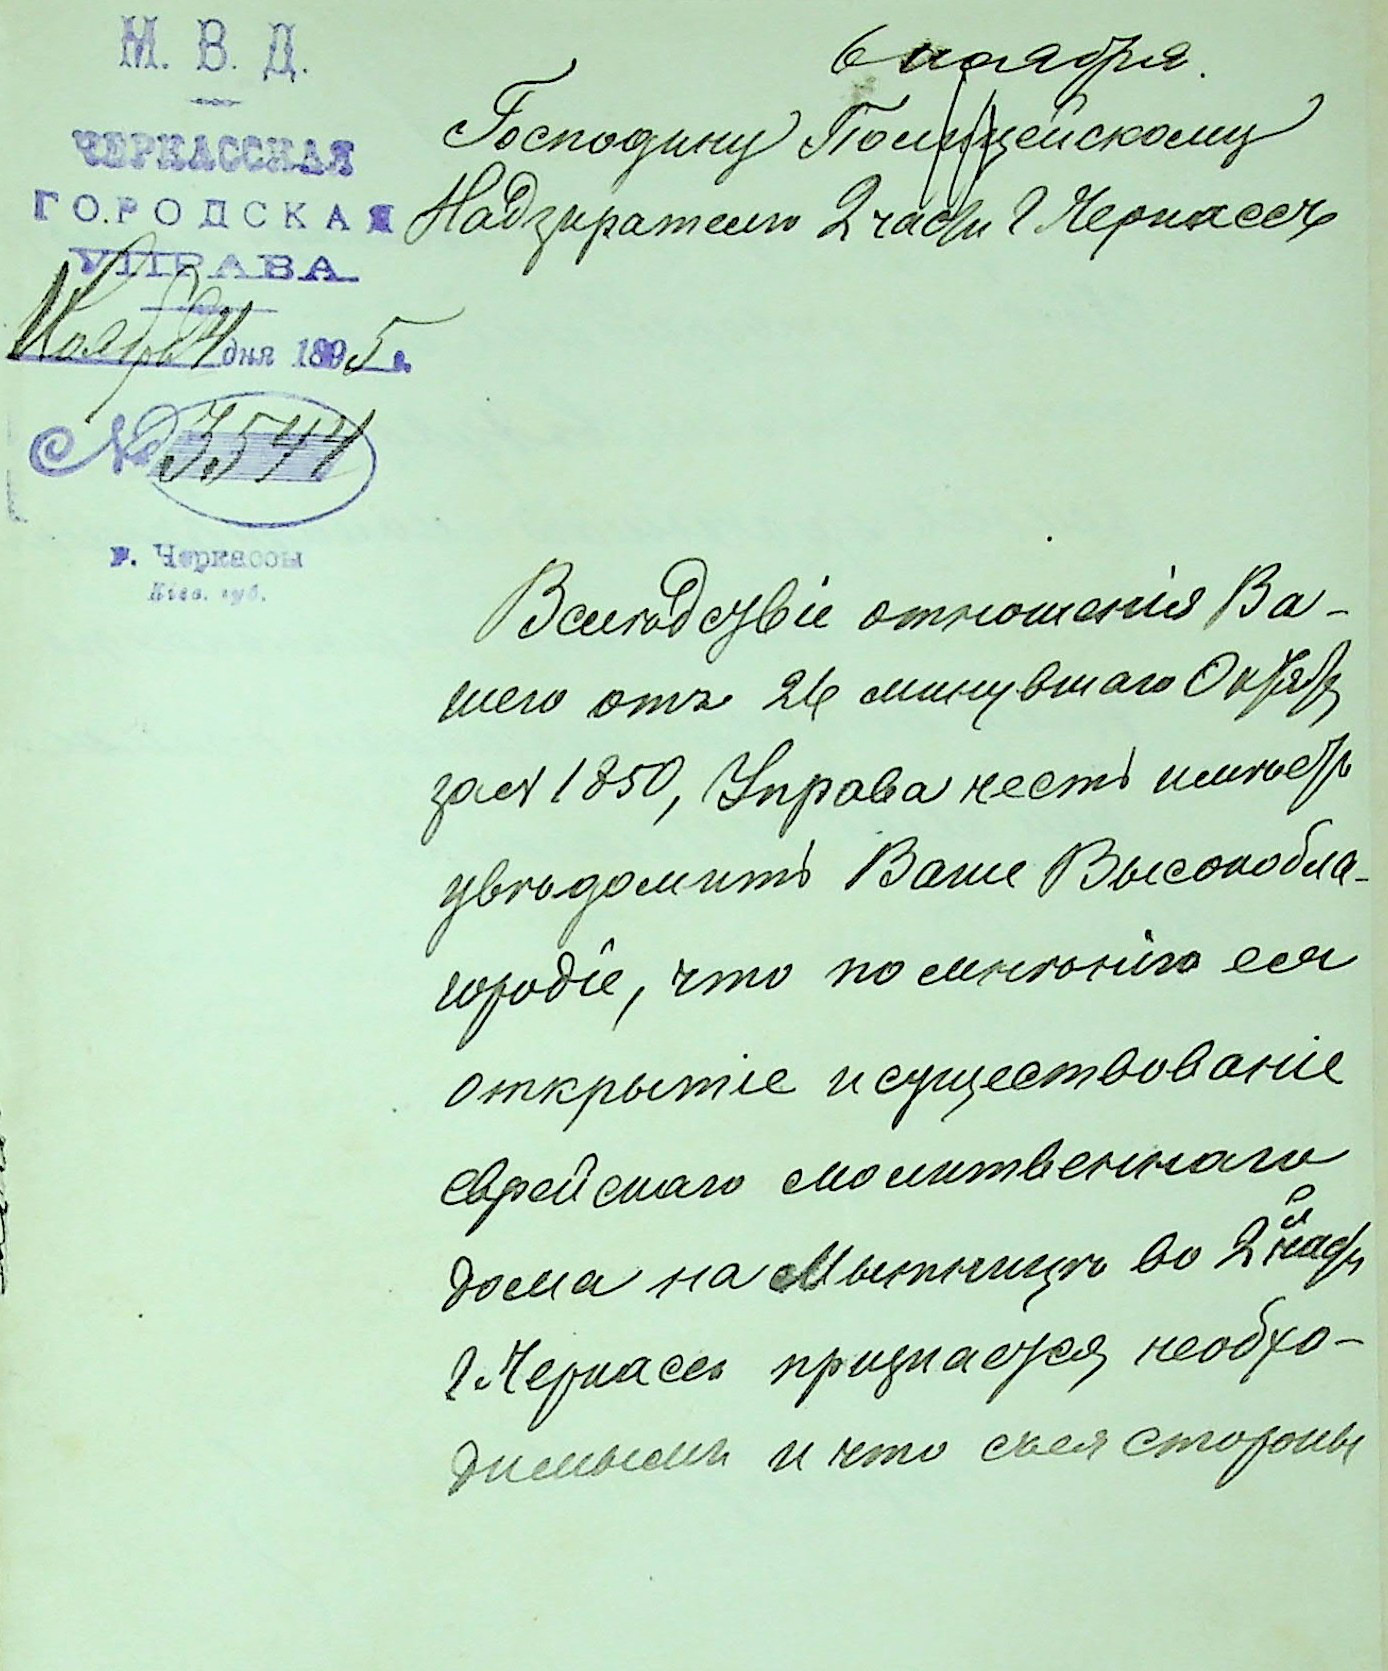 М. В. Д.
ЧЕРКАССКАЯ
ГОРОДСКАЯ
УПРАВА
Ноября 4 дня 1895 г.
№ 3544
г. Черкассы
Кіев. губ.
6 ноября.
Господину Полицейскому
Надзирателю 2 части г Черкассъ
Вслѣдствіе отношенія Ва-
шего отъ 26 минувшаго Октября
за № 1850, Управа честь имѣетъ
увѣдомить Ваше Высокобла-
городіе, что по мнѣнію ея
открытіе и существованіе
еврейскаго молитвеннаго
дома на Мытницѣ во 2й части
г. Черкассъ признается необхо-
димымъ и что съ ея стороны